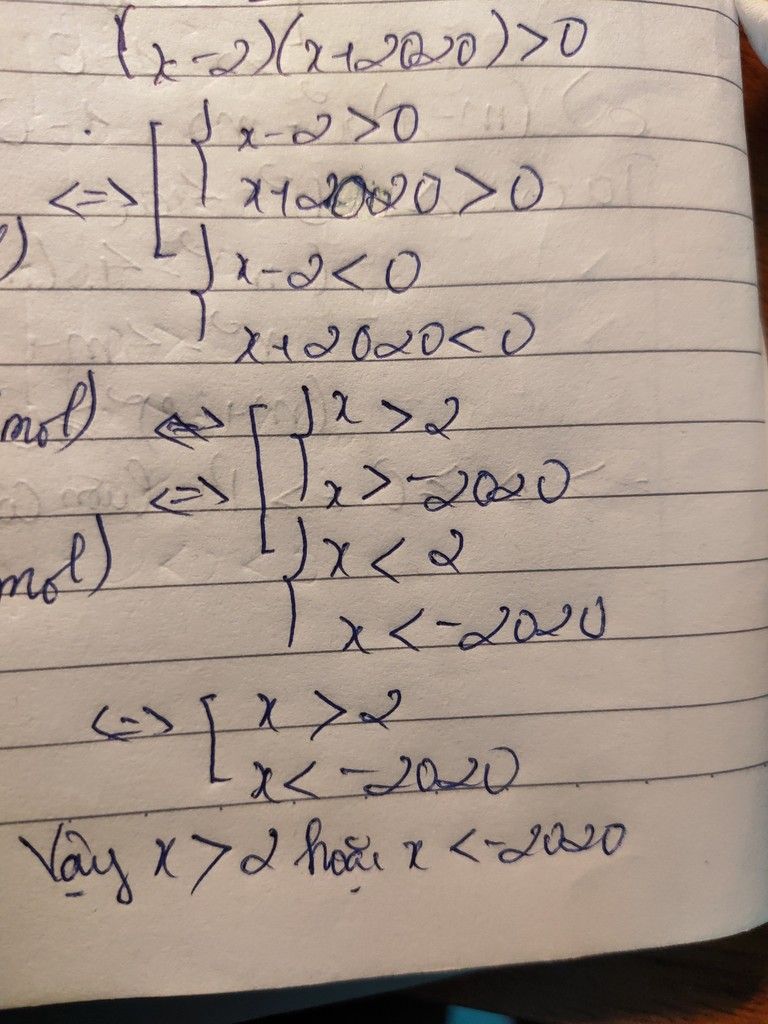 (x-2)(x+2020)>0
x-2>0
<=> [ { x+2020>0
) { x-2<0
x+2020<0
mol) <=> [ { x>2
<=> x>-2020
mol) { x<2
x<-2020
<=> [ x>2
x<-2020
Vậy x>2 hoặc x<-2020